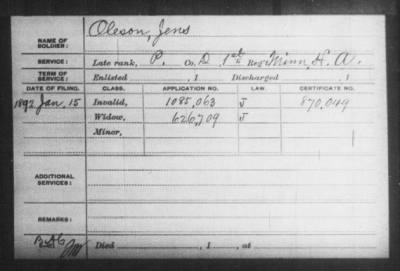 NAME OF SOLDIER: Oleson, Jens
SERVICE: Late rank, P. Co. D, 1st Reg't Minn. H. A.
TERM OF SERVICE: Enlisted , 1 Discharged , 1
DATE OF FILING. CLASS. APPLICATION NO. LAW. CERTIFICATE NO.
1892 Jan. 15 Invalid, 1085,063 J 870,049
Widow, 626,709 J
Minor,
ADDITIONAL SERVICES:
REMARKS:
Died , 1 , at